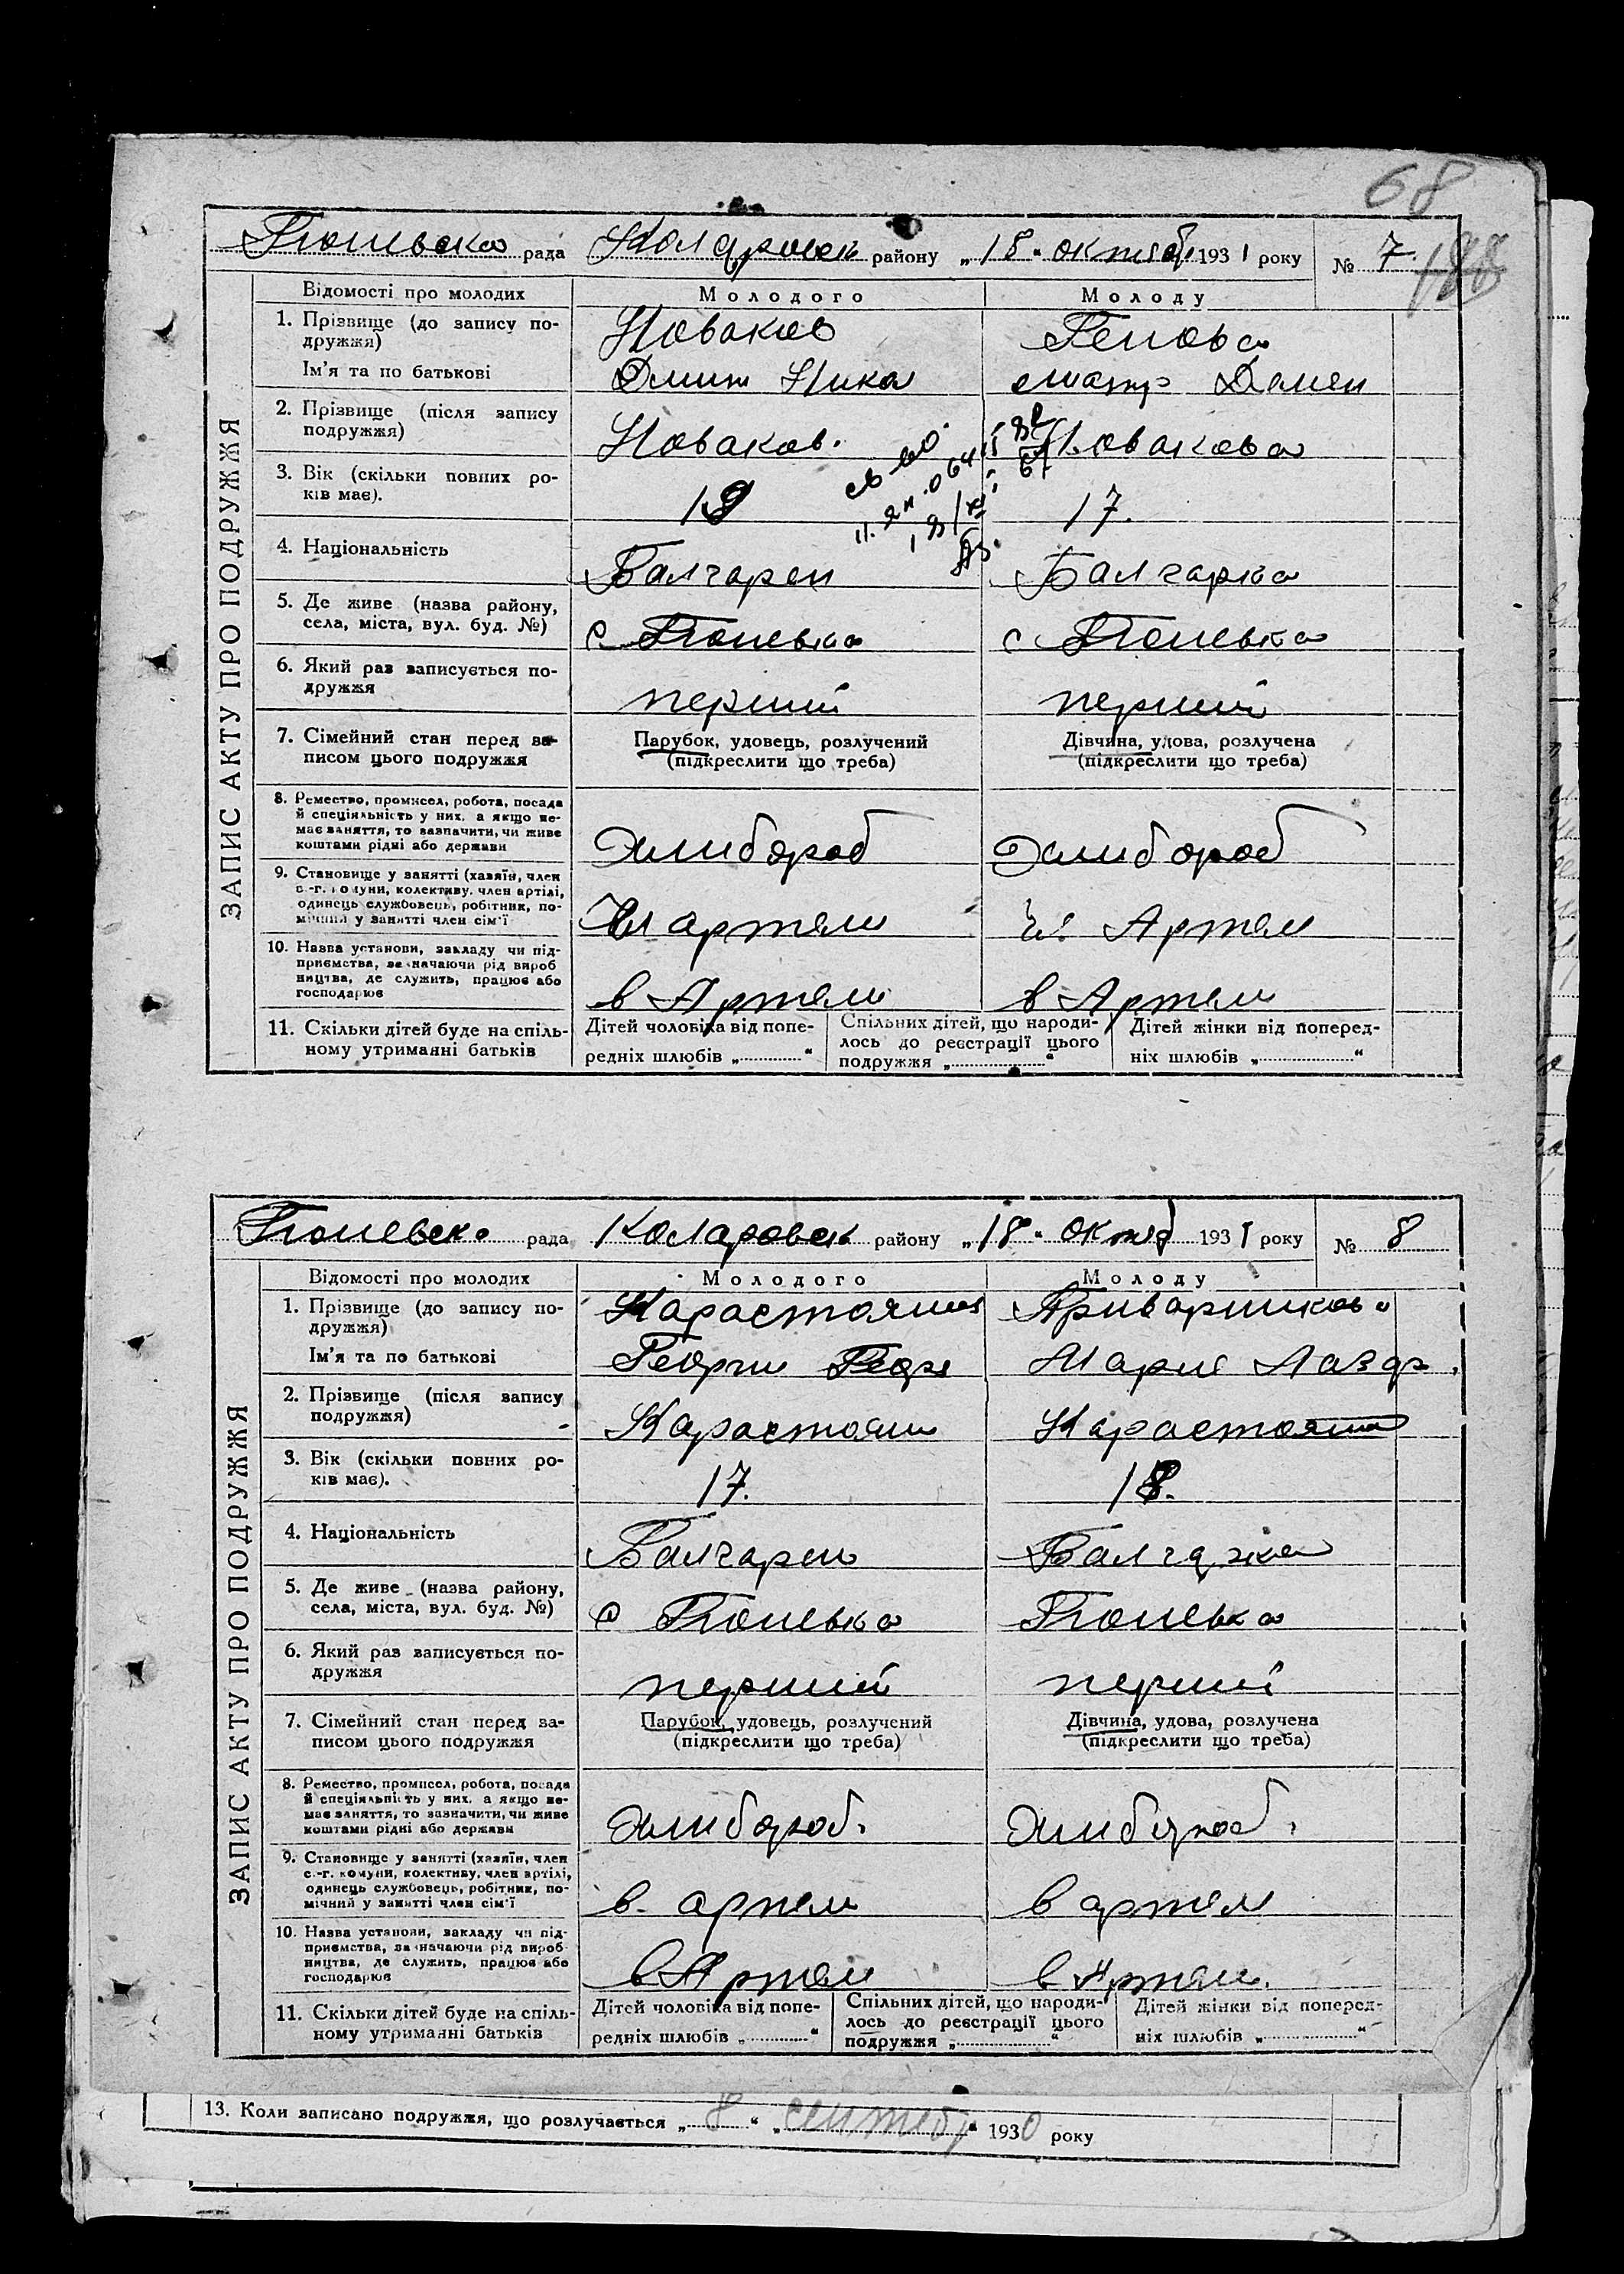 68
Тюшевска рада Коларовск району „18“ октяб 1931 року № 7.
188
ЗАПИС АКТУ ПРО ПОДРУЖЖЯ
Відомості про молодих Молодого Молоду
1. Прізвище (до запису по-
дружжя)
Новаков Генова
Ім'я та по батькові Дмит Никол Матр Демен
2. Прізвище (після запису
подружжя)
Новаков. Новакова
3. Вік (скільки повних ро-
ків має).
19 17.
4. Національність Балгарен Балгарка
5. Де живе (назва району,
села, міста, вул. буд. №)
6. Який раз записується по-
дружжя
перший перший
7. Сімейний стан перед за-
писом цього подружжя
Парубок, удовець, розлучений
(підкреслити що треба)
Дівчина, удова, розлучена
(підкреслити що треба)
8. Ремество, промисел, робота, посада
й спеціяльність у них, а якщо не-
має заняття, то зазначити, чи живе
коштами рідні або держави
Хлибороб Хлибороб
9. Становище у занятті (хазяїн, член
с.-г. комуни, колективу, член артілі,
одинець службовець, робітник, по-
мічний у занятті член сім'ї
Чл артели Чл Артел
10. Назва установи, закладу чи під-
приємства, зазначаючи рід вироб
ництва, де служить, працює або
господарює
в Артели в Артели
11. Скільки дітей буде на спіль-
ному утриманні батьків
Дітей чоловіка від попе-
редніх шлюбів „ “
Спільних дітей, що народи-
лось до реєстрації цього
подружжя „ “
Дітей жінки від поперед-
ніх шлюбів „ “
Тюшевска рада Коларовск району „18“ октяб 1931 року № 8
ЗАПИС АКТУ ПРО ПОДРУЖЖЯ
Відомості про молодих Молодого Молоду
1. Прізвище (до запису по-
дружжя)
Карастоянов
Ім'я та по батькові Георги Геор Мария Лазар.
2. Прізвище (після запису
подружжя)
Карастоян Карастоян
3. Вік (скільки повних ро-
ків має).
17. 18.
4. Національність Балгарен Балгарка
5. Де живе (назва району,
села, міста, вул. буд. №)
6. Який раз записується по-
дружжя
перший перший
7. Сімейний стан перед за-
писом цього подружжя
Парубок, удовець, розлучений
(підкреслити що треба)
Дівчина, удова, розлучена
(підкреслити що треба)
8. Ремество, промисел, робота, посада
й спеціяльність у них, а якщо не-
має заняття, то зазначити, чи живе
коштами рідні або держави
Хлибороб. Хлибороб.
9. Становище у занятті (хазяїн, член
с.-г. комуни, колективу, член артілі,
одинець службовець, робітник, по-
мічний у занятті член сім'ї
в артели в артел
10. Назва установи, закладу чи під-
приємства, зазначаючи рід вироб-
ництва, де служить, працює або
господарює
в Артели в Артели.
11. Скільки дітей буде на спіль-
ному утриманні батьків
Дітей чоловіка від попе-
редніх шлюбів „ “
Спільних дітей, що народи-
лось до реєстрації цього
подружжя „ “
Дітей жінки від поперед-
ніх шлюбів „ “
13. Коли записано подружжя, що розлучається „8“ „сентябр“ 1930 року